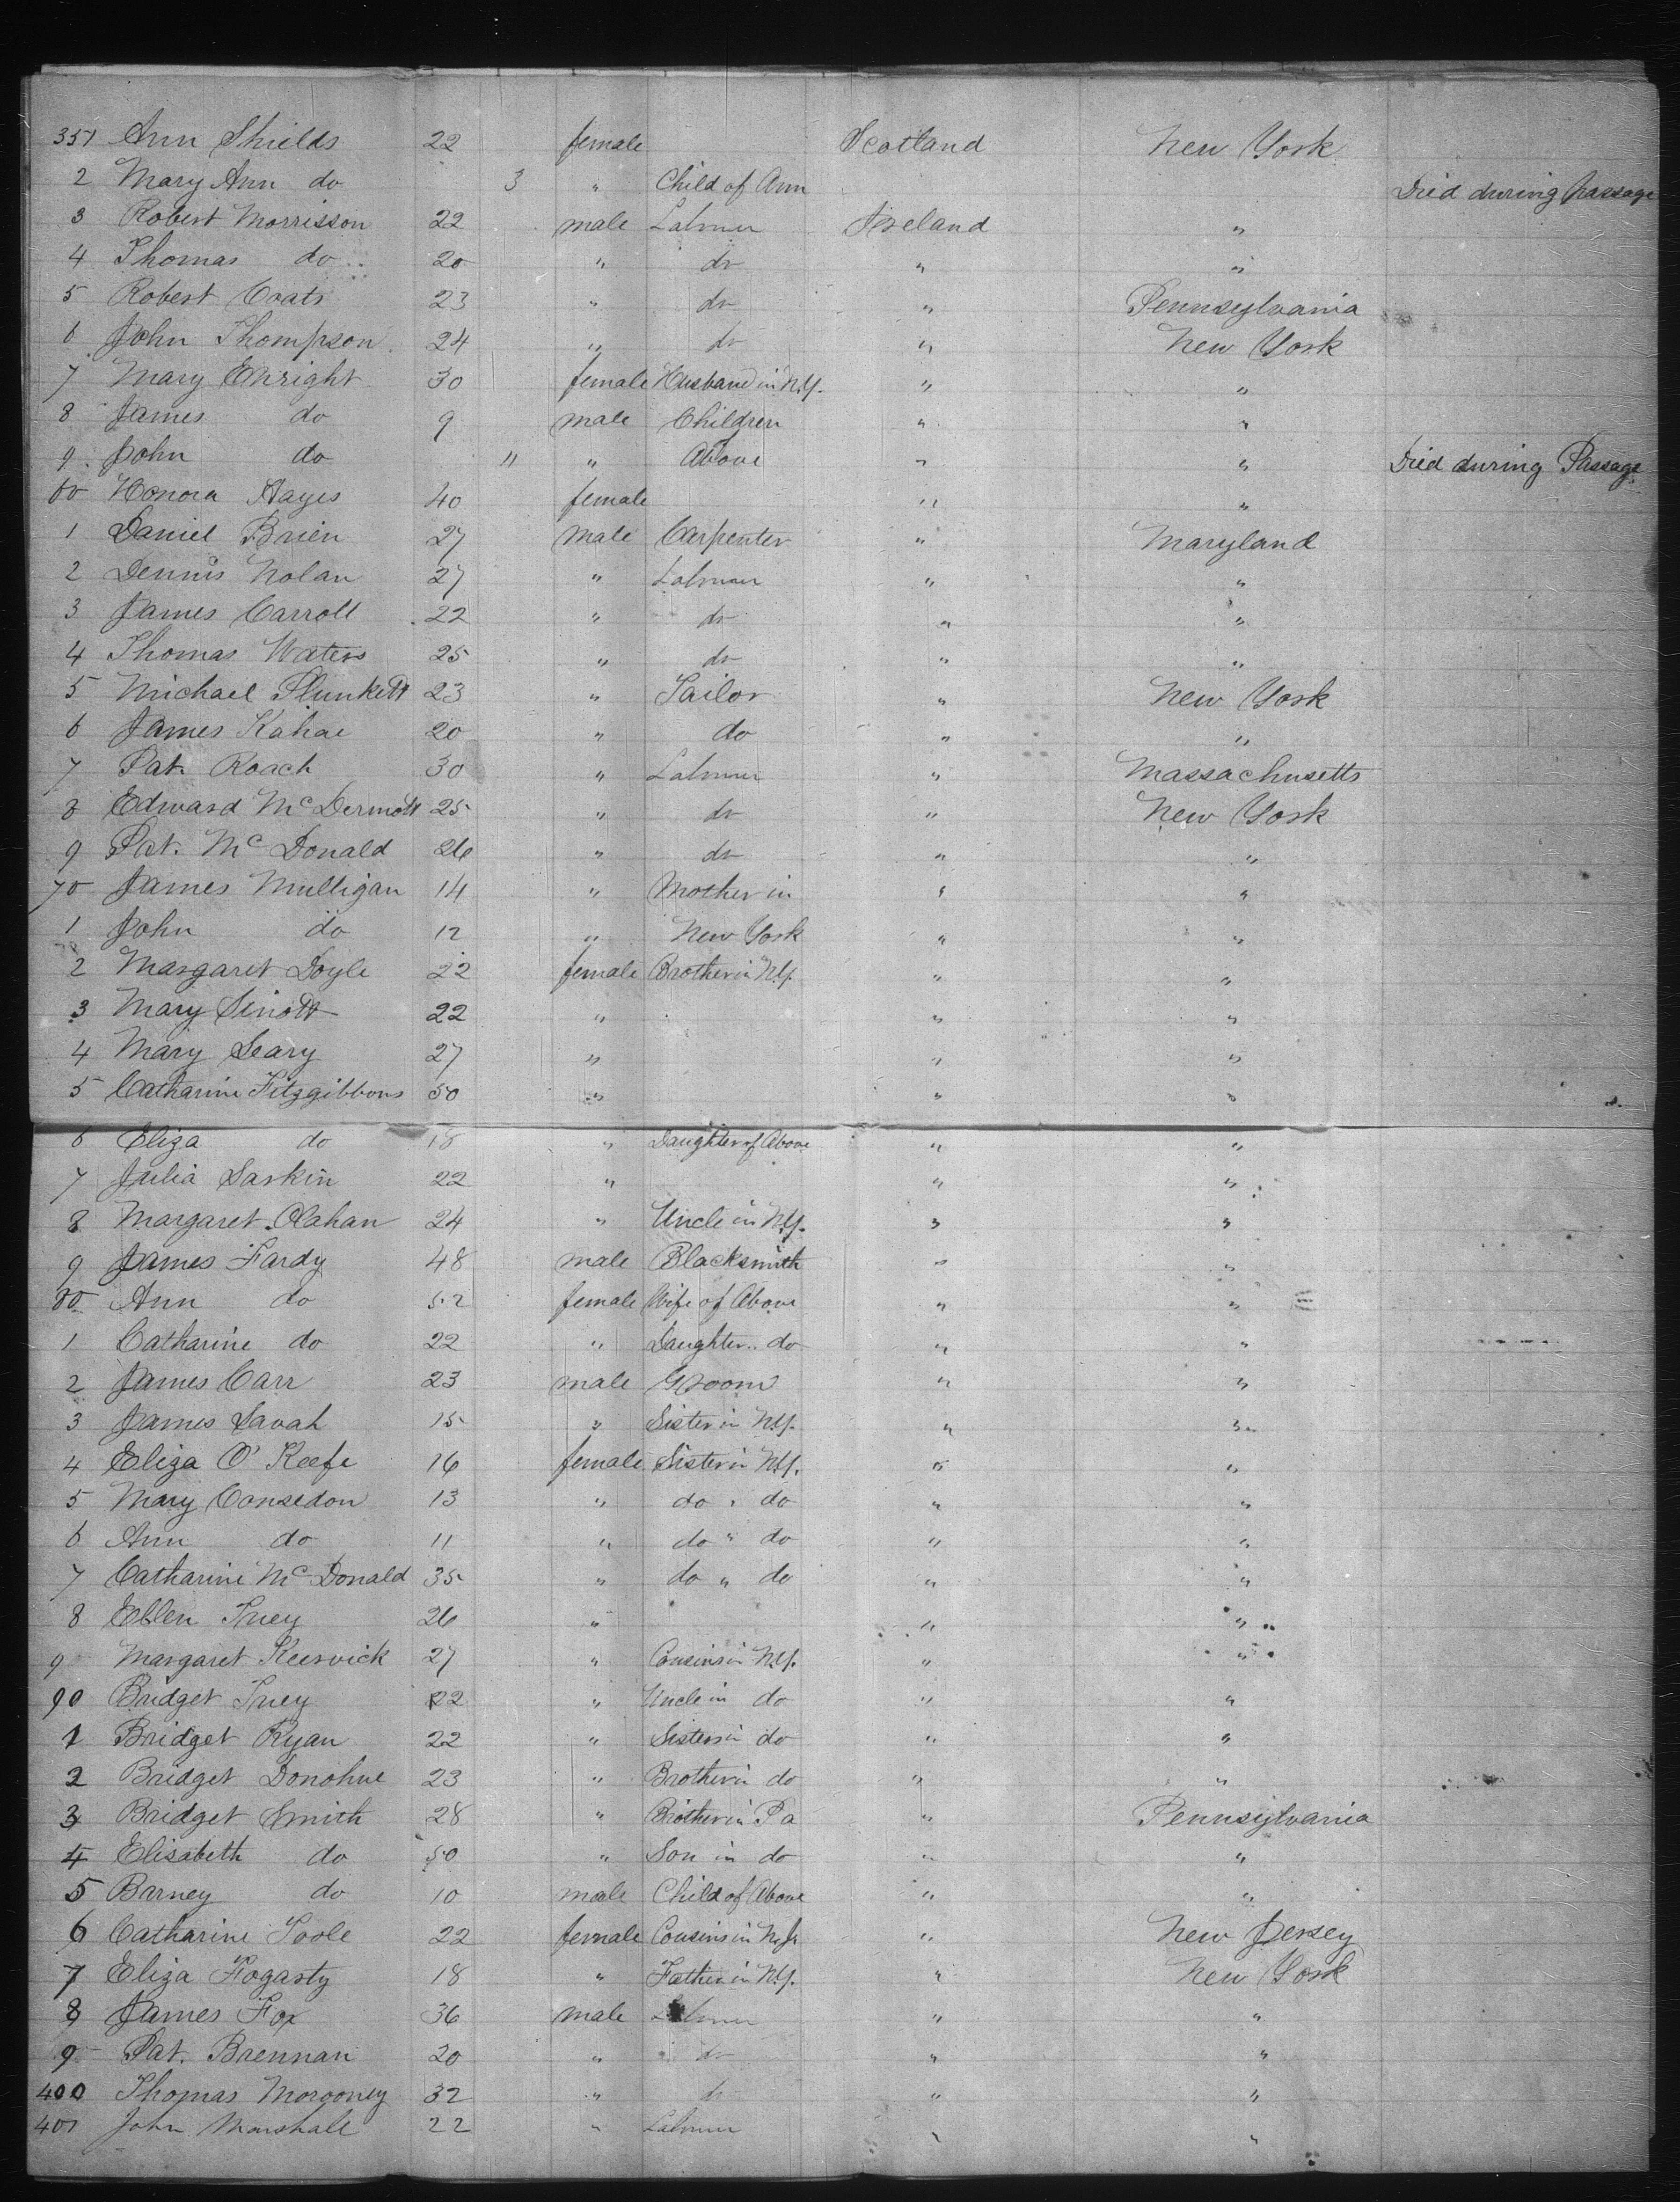 351 Ann Shields 22 female Scotland New York
2 Mary Ann do 3 " Child of Ann Died during Passage
3 Robert Morrisson 22 male Labourer Ireland "
4 Thomas do 20 " do " "
5 Robert Coats 23 " do " Pennsylvania
6 John Thompson 24 " do " New York
7 Mary Enright 30 female Husband in N.Y. " "
8 James do 9 male Children " "
9 John do 11 " Above " " Died during Passage
60 Honora Hayes 40 female " "
1 Daniel Brien 27 male Carpenter " Maryland
2 Dennis Nolan 27 " Labourer " "
3 James Carroll 22 " do " "
4 Thomas Waters 25 " do " "
5 Michael Plunkett 23 " Tailor " New York
6 James Kahae 20 " do " "
7 Pat. Roach 30 " Labourer " Massachusetts
8 Edward McDermott 25 " do " New York
9 Pat. McDonald 26 " do " "
70 James Mulligan 14 " Mother in " "
1 John do 12 " New York " "
2 Margaret Doyle 22 female Brother in N.Y. " "
3 Mary Sinott 22 " " "
4 Mary Leary 27 " " "
5 Catharine Fitzgibbons 50 " " "
6 Eliza do 18 " Daughter of Above " "
7 Julia Larkin 22 " " "
8 Margaret Clahan 24 " Uncle in N.Y. " "
9 James Fardy 48 male Blacksmith " "
80 Ann do 52 female Wife of Above " "
1 Catharine do 22 " Daughter " do " "
2 James Carr 23 male Groom " "
3 James Lavah 15 " Sister in N.Y. " "
4 Eliza O'Keefe 16 female Sister in N.Y. " "
5 Mary Consedon 13 " do " do " "
6 Ann do 11 " do " do " "
7 Catharine McDonald 35 " do " do " "
8 Ellen Tuey 26 " " "
9 Margaret Keervick 27 " Cousins in N.Y. " "
90 Bridget Tuey 22 " Uncle in do " "
1 Bridget Ryan 22 " Sisters in do " "
2 Bridget Donohue 23 " Brother in do " "
3 Bridget Smith 28 " Brother in Pa " Pennsylvania
4 Elisabeth do 50 " Son in do " "
5 Barney do 10 male Child of Above " "
6 Catharine Toole 22 female Cousins in N.J. " New Jersey
7 Eliza Fogarty 18 " Father in N.Y. " New York
8 James Fox 36 male Labourer " "
9 Pat. Brennan 20 " do " "
400 Thomas Morooney 32 " do " "
401 John Marshall 22 " Labourer " "